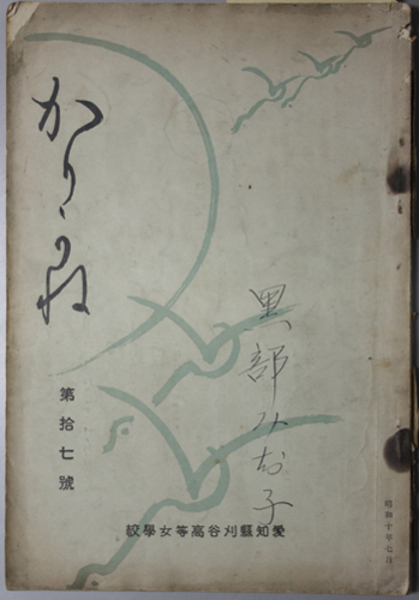 かりがね
第拾七號
黒部みお子
愛知縣刈谷高等女學校
昭和十年七月